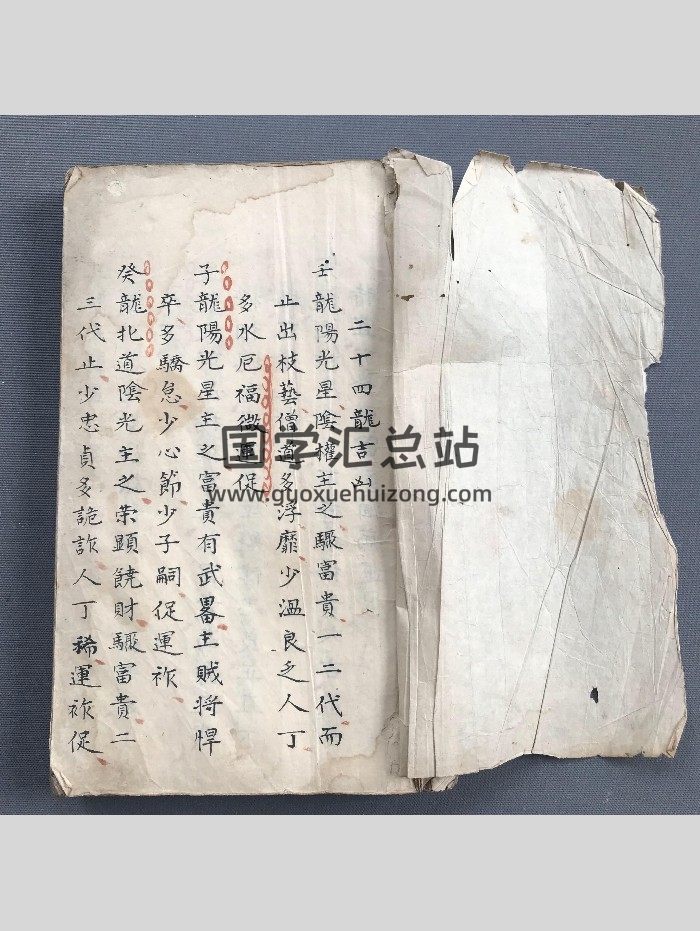 二十四龍吉凶
壬龍陽光星陰權主之驟富貴一二代而
止出枝藝僧道多浮靡少溫良乏人丁
多水厄福微運促
子龍陽光星主之富貴有武畧主賊将悍
卒多驕怠少心節少子嗣促運祚
癸龍北道陰光主之荣顕饒財驟富貴二
三代止少忠貞多詭詐人丁稀運祚促
国学汇总站
www.guoxuehuizong.com